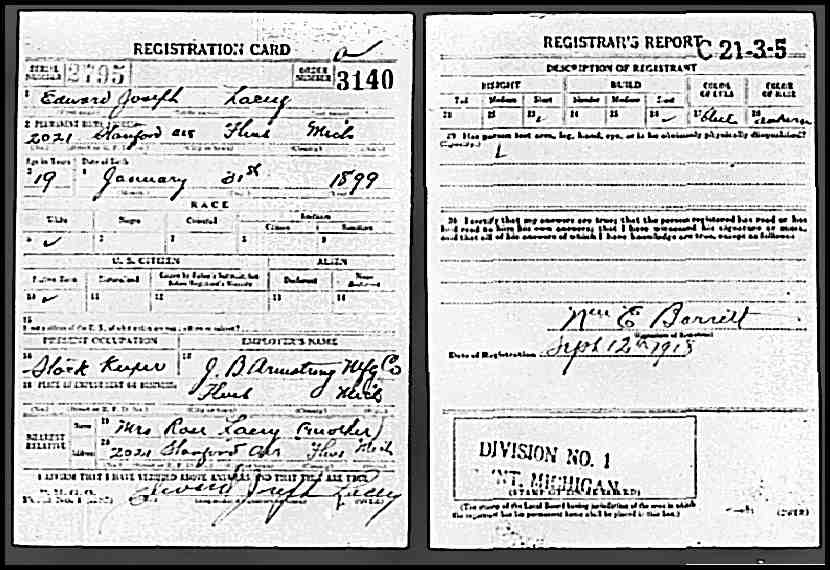 REGISTRATION CARD
SERIAL NUMBER 2795
ORDER NUMBER 3140
1 Edward Joseph Lacey
2 PERMANENT HOME ADDRESS
2021 Stanford Ave Flint Mich
Age in Years Date of Birth
3 19 4 January 31st 1899
RACE
White Negro Oriental Indian
Citizen
5 ✓ 6 7 8 9
U. S. CITIZEN ALIEN
Native Born Naturalized Declarant
10 ✓ 11 12 13 14
15
PRESENT OCCUPATION EMPLOYER'S NAME
16 Stock Keeper 17 J. B Armstrong Mfg Co
18 PLACE OF EMPLOYMENT OR BUSINESS
Flint Mich
NEAREST RELATIVE
Name 19 Mrs Rose Lacey (mother)
Address 20 2021 Stanford Ave Flint Mich
I AFFIRM THAT I HAVE VERIFIED ABOVE ANSWERS AND THAT THEY ARE TRUE
Edward Joseph Lacey
REGISTRAR'S REPORT
C 21-3-5
DESCRIPTION OF REGISTRANT
HEIGHT BUILD COLOR OF EYES COLOR OF HAIR
Tall Medium Short Slender Medium Stout
21 22 23 ✓ 24 25 26 ✓ 27 Blue 28
29 Has person lost arm, leg, hand, eye, or is he obviously physically disqualified?
(Specify.)
30 I certify that my answers are true; that the person registered has read or has
had read to him his own answers; that I have witnessed his signature or mark,
and that all of his answers of which I have knowledge are true, except as follows:
Wm E Barrett
Date of Registration Sept 12th 1918
DIVISION NO. 1
MICHIGAN
(STAMP OF LOCAL BOARD)
(The stamp of the Local Board having jurisdiction of the area in which
the registrant has his permanent home shall be placed in this box.)
(OVER)